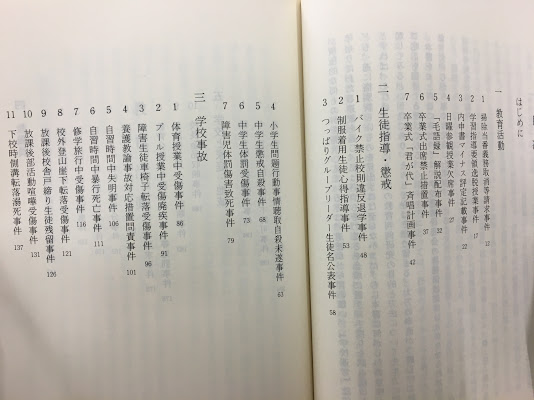 はじめに
一 教育活動
1 掃除当番義務取消等請求事件 13
2 学習指導要領逸脱授業事件 17
3 内申書マイナス評定記載事件 22
4 日曜参観授業欠席事件 27
5 「毛語録」解説配布事件 32
6 卒業式出席禁止措置事件 37
7 卒業式「君が代」斉唱計画事件 42
二 生徒指導・懲戒
1 バイク禁止校則違反退学事件 48
2 制服着用生徒心得指導事件 53
3 つっぱりグループリーダー生徒名公表事件 58
4 小学生問題行動事情聴取自殺未遂事件 63
5 中学生懲戒自殺事件 68
6 中学生体罰受傷事件 73
7 障害児体罰傷害致死事件 79
三 学校事故
1 体育授業中受傷事件 86
2 プール授業中受傷廃疾事件 91
3 障害生徒車椅子転落受傷事件 96
4 養護教諭事故対応措置問責事件 101
5 自習時間中失明事件 106
6 自習時間中暴行死亡事件 111
7 修学旅行中受傷事件 116
8 校外登山崖下転落受傷事件 121
9 放課後校舎戸締り生徒残留事件 126
10 放課後部活動喧嘩受傷事件 131
11 下校時側溝転落溺死事件 137